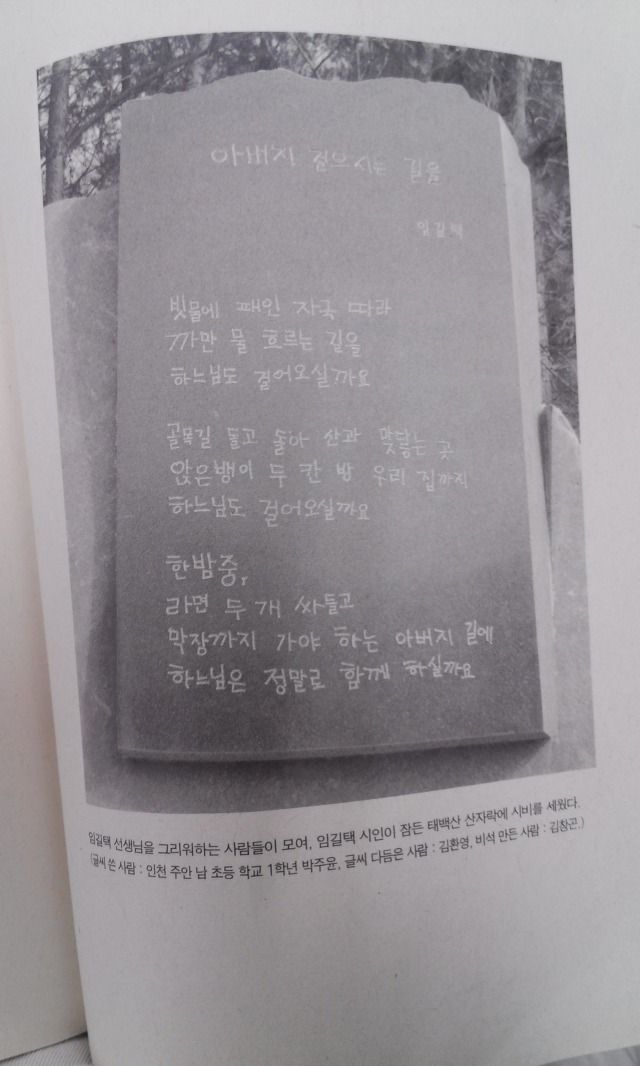 아버지 걸으시는 길을
임길택
빗물에 패인 자국 따라
까만 물 흐르는 길을
하느님도 걸어오실까요
골목길 돌고 돌아 산과 맞닿는 곳
앉은뱅이 두 칸 방 우리 집까지
하느님도 걸어오실까요
한밤중,
라면 두 개 싸들고
막장까지 가야 하는 아버지 길에
하느님은 정말로 함께 하실까요
임길택 선생님을 그리워하는 사람들이 모여, 임길택 시인이 잠든 태백산 산자락에 시비를 세웠다.
(글씨 쓴 사람 : 인천 주안 남 초등 학교 1학년 박주윤, 글씨 다듬은 사람 : 김환영, 비석 만든 사람 : 김창곤.)